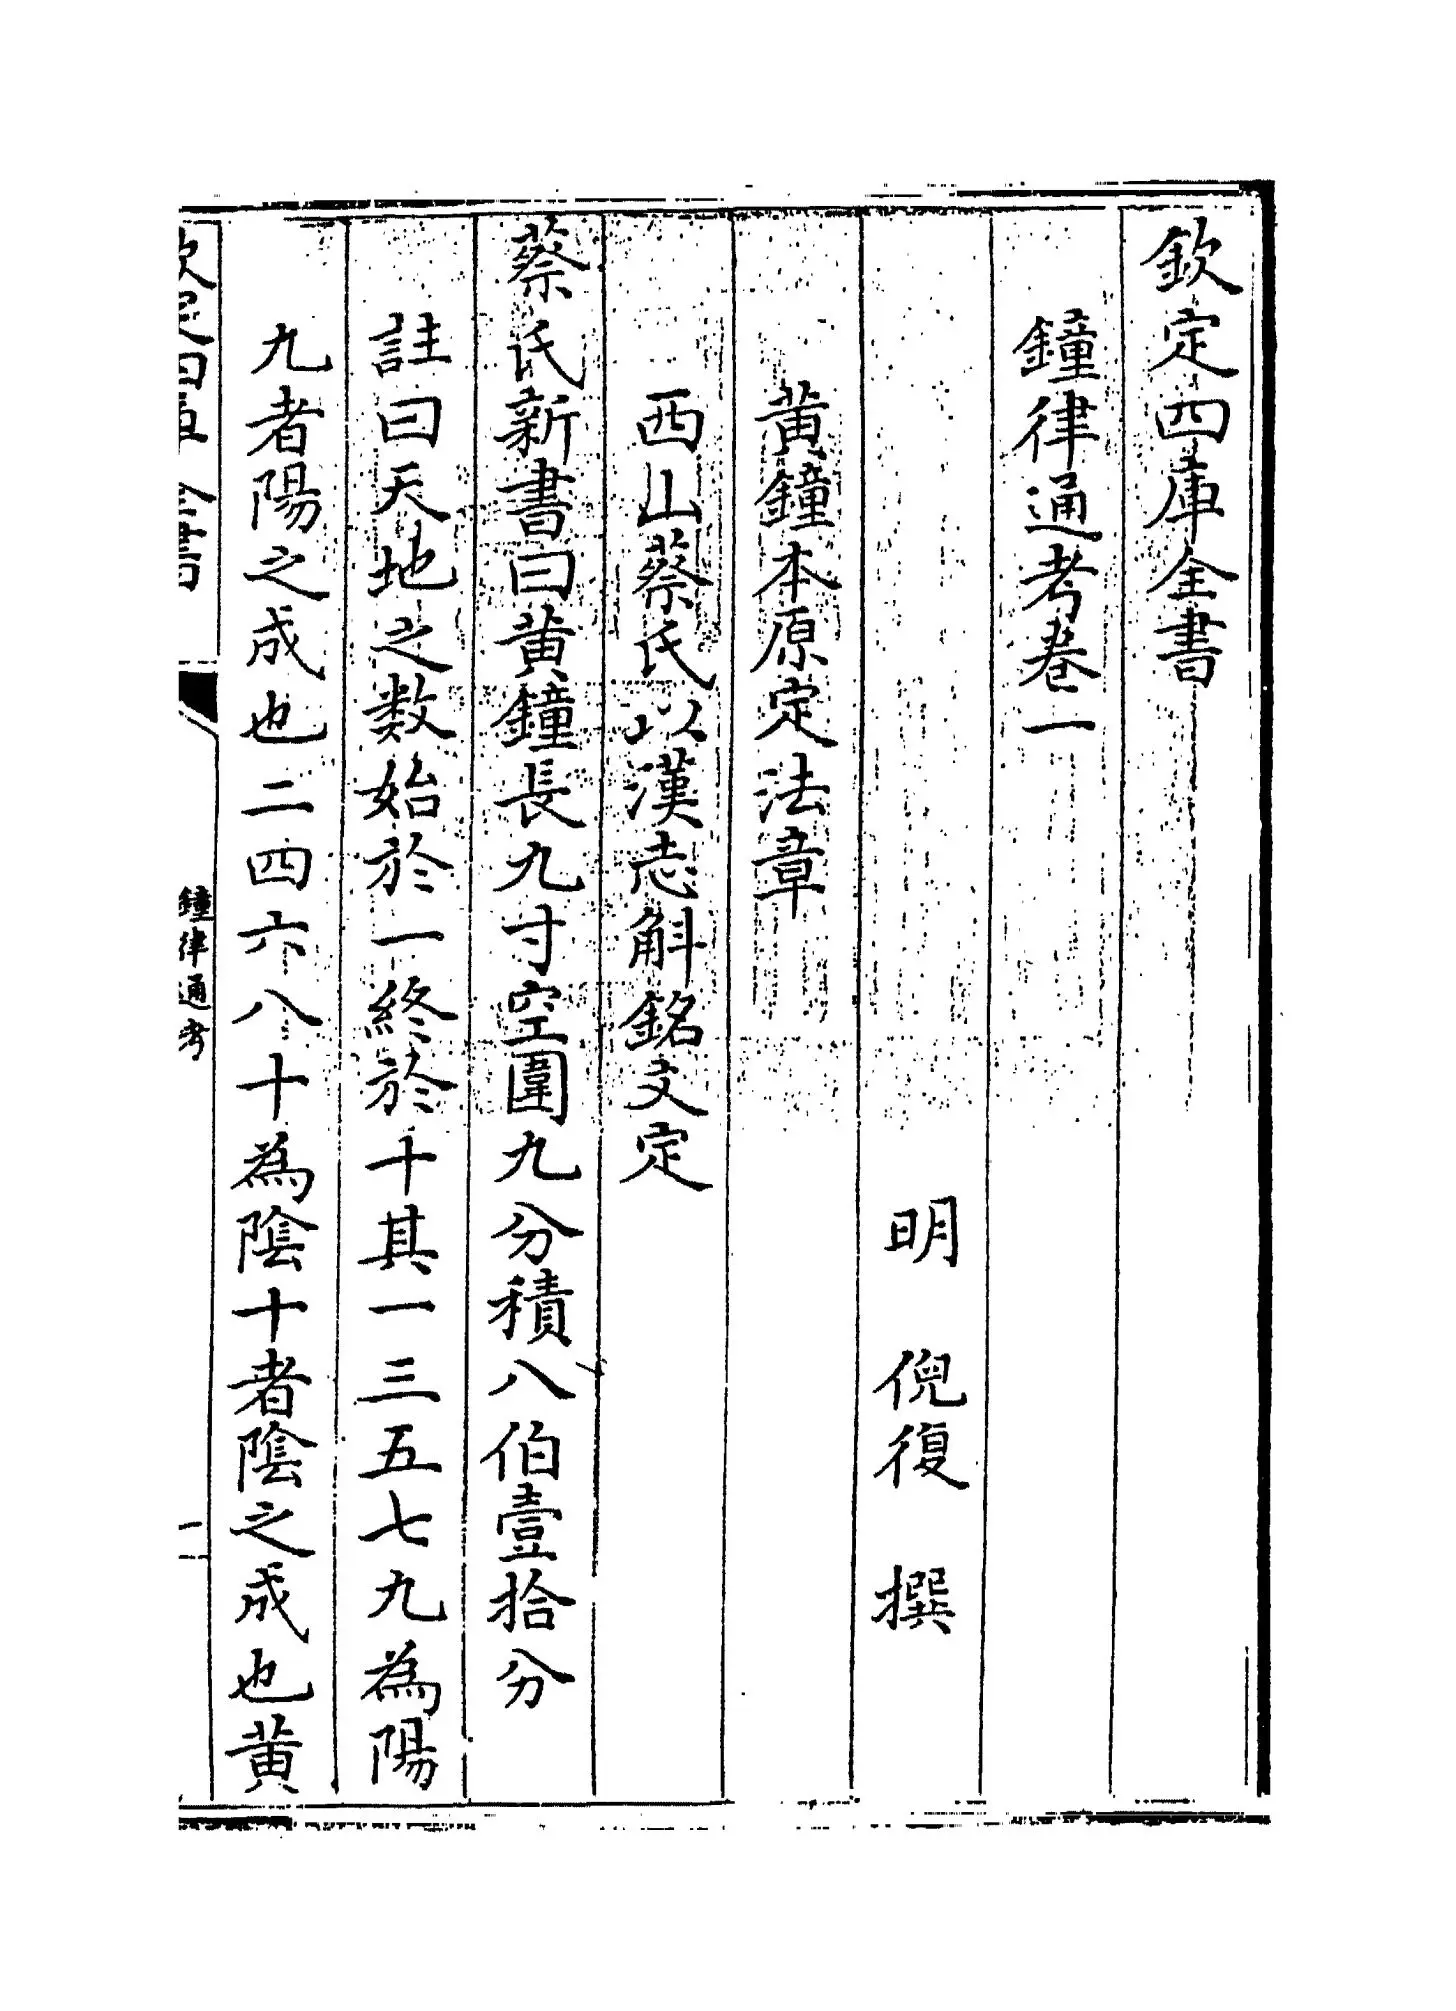 欽定四庫全書
鐘律通考卷一
明 倪復 撰
黃鐘本原定法章
西山蔡氏以漢志斛銘文定
蔡氏新書曰黃鐘長九寸空圍九分積八伯壹拾分
註曰天地之數始於一終於十其一三五七九為陽
九者陽之成也二四六八十為陰十者陰之成也黃
欽定四庫全書
鐘律通考
一